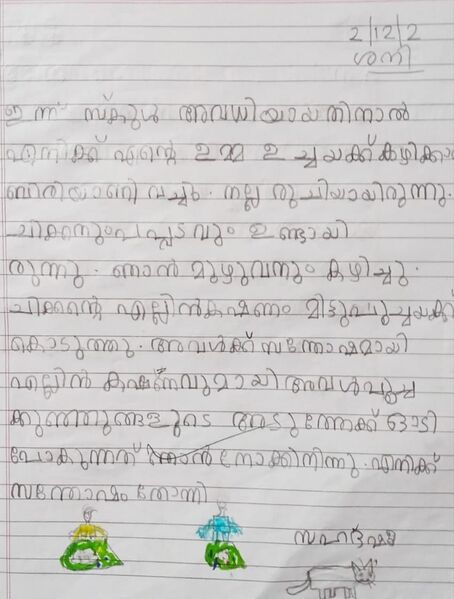 2/12/2
ശനി
ഇന്ന് സ്കൂൾ അവധിയായതിനാൽ
എനിക്ക് എന്റെ ഉമ്മ ഉച്ചയക്ക് കഴിക്കാ
ബിരിയാണി വച്ചു. നല്ല രുചിയായിരുന്നു.
ചിക്കനും പപ്പടവും ഉണ്ടായി
രുന്നു. ഞാൻ മുഴുവനും കഴിച്ചു.
ചിക്കന്റെ എല്ലിൻകഷണം മിട്ടുപൂച്ചയക്ക്
കൊടുത്തു. അവൾക്ക് സന്തോഷമായി
എല്ലിൻ കഷ്ണവുമായി അവൾ പൂച്ച
ക്കുഞ്ഞുങ്ങളുടെ അടുത്തേക്ക് ഓടി
പോകുന്നത് ഞാൻ നോക്കിനിന്നു. എനിക്ക്
സന്തോഷം തോന്നി